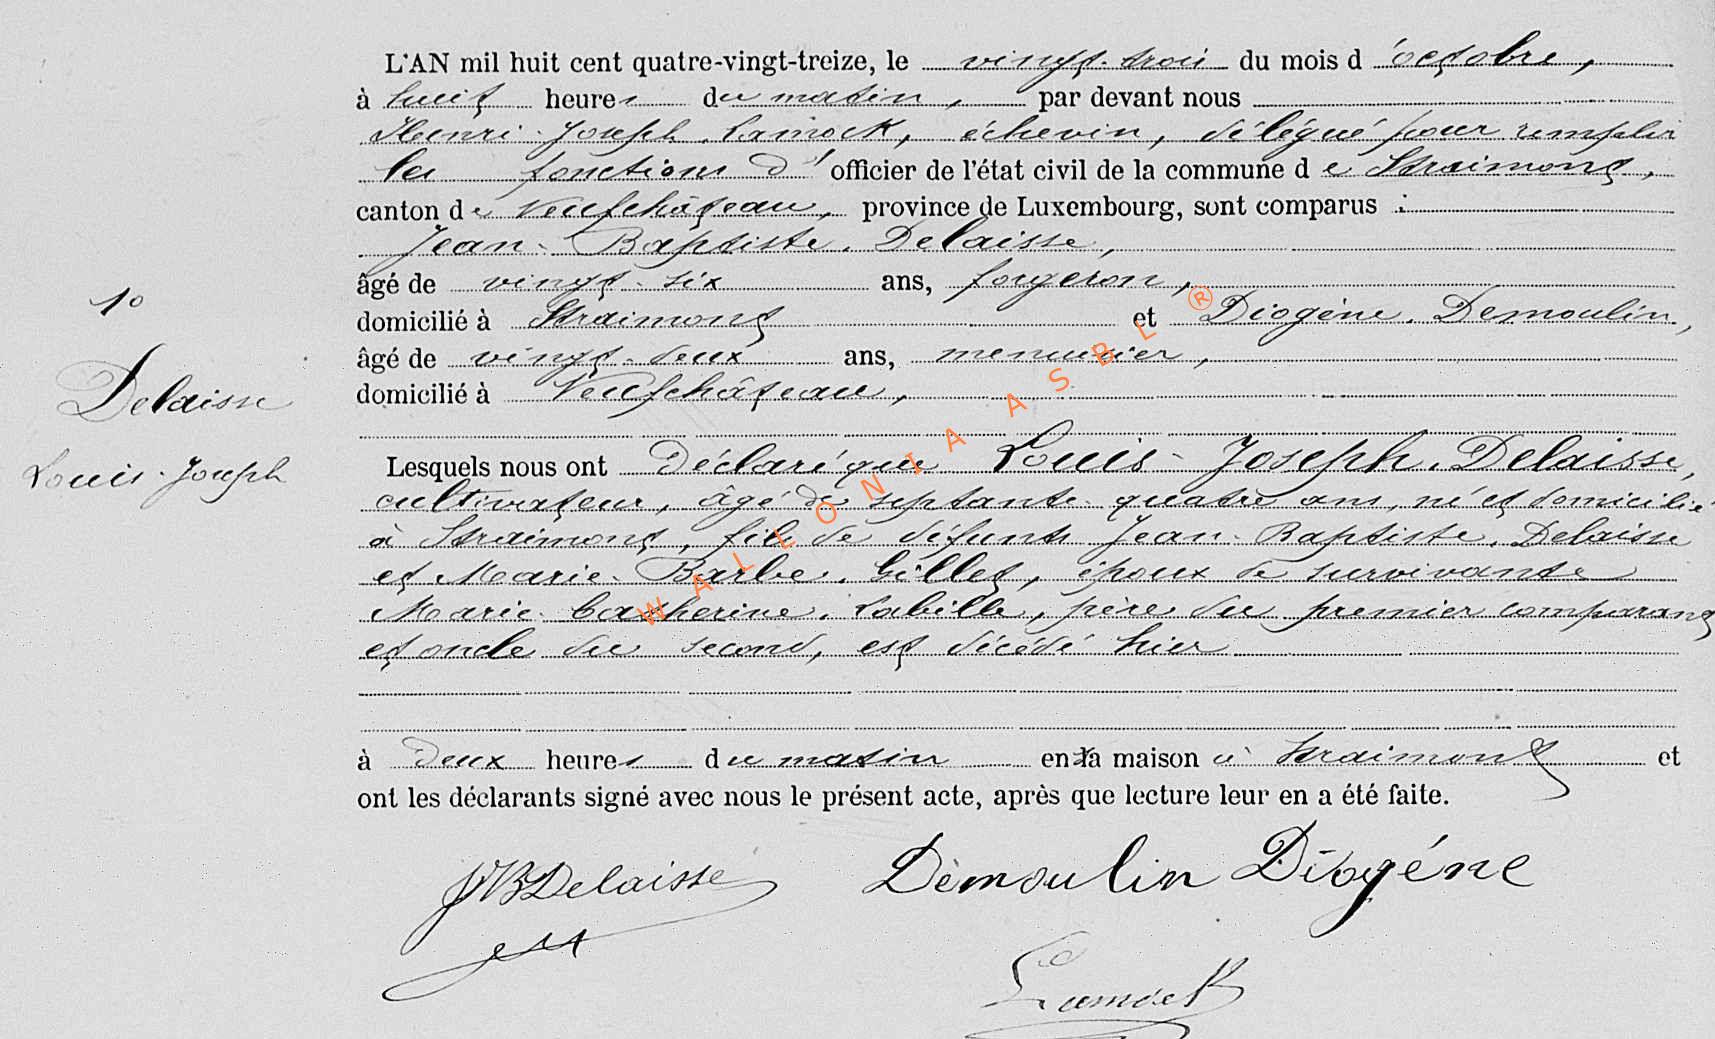 L'AN mil huit cent quatre-vingt-treize, le vingt-trois du mois d'octobre,
à huit heures du matin, par devant nous
Henri-Joseph Lamock, échevin, délégué pour remplir
les fonctions d'officier de l'état civil de la commune de Straimont,
canton de Neufchâteau, province de Luxembourg, sont comparus :
Jean-Baptiste Delaisse,
âgé de vingt-six ans, forgeron,
domicilié à Straimont et Diogène Demoulin,
âgé de vingt-deux ans, menuisier,
domicilié à Neufchâteau,
1°
Delaisse
Louis-Joseph
Lesquels nous ont déclaré que Louis-Joseph Delaisse,
cultivateur, âgé de septante-quatre ans, né et domicilié
à Straimont, fils de défunts Jean-Baptiste Delaisse
et Marie-Barbe Gillet, époux de survivante
Marie-Catherine Labille, père du premier comparant
et oncle du second, est décédé hier
à deux heures du matin en sa maison à Straimont et
ont les déclarants signé avec nous le présent acte, après que lecture leur en a été faite.
JB Delaisse
Démoulin Diogéne
Lamock
WALLONIA ASBL ®